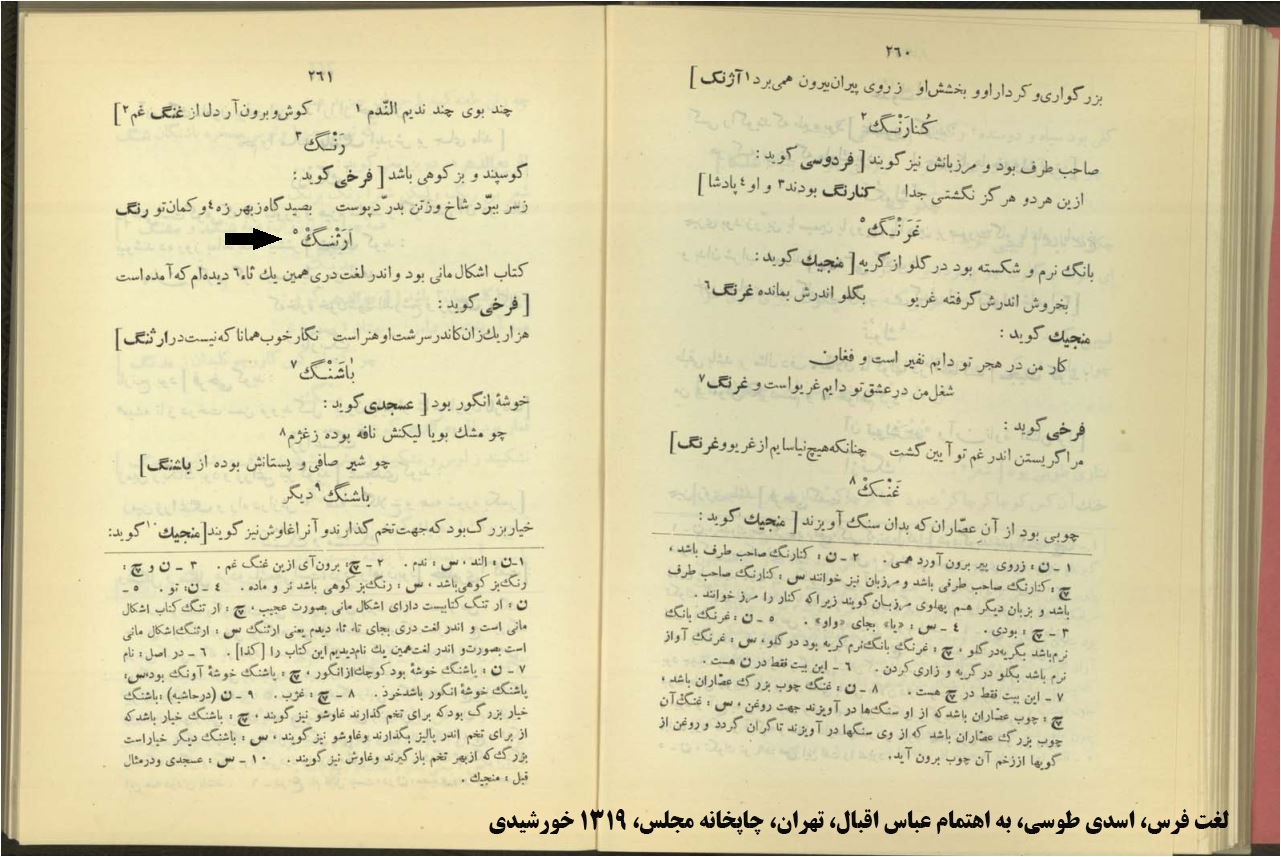 ٢٦٠
بزرگواری و کردار او و بخشش او ز روی پیران بیرون همی برد١ آژنگ ]
کُنارَنْگ٢
صاحب طرف بود و مرزبانش نیز گویند [ فردوسی گوید :
ازین هر دو هرگز نگشتی جدا کنارنگ بودند٣ و او٤ پادشا ]
غَرَنْگ٥
بانگ نرم و شکسته بود در گلو از گریه [ منجیك گوید :
بخروش اندرش گرفته غریو بگلو اندرش بمانده غرنگ٦
منجیك گوید :
کار من در هجر تو دایم نفیر است و فغان
شغل من در عشق تو دایم غریو است و غرنگ٧
فرخی گوید :
مرا گریستن اندر غم تو آیین گشت چنانکه هیچ نیاسایم از غریو و غرنگ ]
غَنْگ٨
چوبی بود از آنِ عصّاران که بدان سنگ آویزند [ منجیك گوید :
١ - ن : زروی پیر برون آورد همی . ٢ - ن : کنارنگ صاحب طرف باشد ،
چ : کنارنگ صاحب طرفی باشد و مرزبان نیز خوانند س : کنارنگ صاحب طرف
باشد و بزبان دیگر هم پهلوی مرزبان گویند زیرا که کنار را مرز خوانند .
٣ - چ : بودی . ٤ - س : «با» بجای «واو» . ٥ - ن : غرنگ بانگ
نرم باشد بگریه در گلو ، چ : غرنگ بانگ نرم گریه بود در گلو ، س : غرنگ آواز
نرم باشد بگلو در گریه و زاری کردن . ٦ - این بیت فقط در ن هست .
٧ - این بیت فقط در چ هست . ٨ - ن : غنگ چوب بزرگ عصّاران باشد ،
چ : چوب عصّاران باشد که از او سنگها در آویزند جهت روغن ، س : غنگ آن
چوب بزرگ عصّاران باشد که از وی سنگها در آویزند تا گران گردد و روغن از
گوبها از زخم آن چوب برون آید .
٢٦١
چند بوی چند ندیم النّدم١ کوش و برون آر دل از غنگ غم٢ ]
رَنْگ٣
گوسپند و بز کوهی باشد [ فرخی گوید :
زسر ببرّد شاخ و زتن بدرّد پوست بصید گاه زبهر زه٤ و کمان تو رنگ
اَرْثَنْگ٥
کتاب اشکال مانی بود و اندر لغت دری همین یك ثاء٦ دیده‌ام که آمده است
[ فرخی گوید :
هزار یك زان کاندر سرشت او هنر است نگار خوب همانا که نیست در ارثنگ ]
باشَنْگ٧
خوشۀ انگور بود [ عسجدی گوید :
چو مشك بویا لیکنش نافه بوده زغژم٨
چو شیر صافی و پستانش بوده از باشنگ ]
باشنگ٩ دیگر
خیار بزرگ بود که جهت تخم گذارند و آنرا غاوش نیز گویند [ منجیك١٠ گوید :
١- ن : الند ، س : ندم . ٢ - چ : برون آی ازین غنگ غم . ٣ - ن و چ :
رنگ بز کوهی باشد ، س : رنگ بز کوهی باشد نر و ماده . ٤ - ن : تو . ٥ -
ن : ار تنگ کتابیست دارای اشکال مانی بصورت عجیب ، چ : ار تنگ کتاب اشکال
مانی است و اندر لغت دری بجای تا، ثا، دیدم یعنی ارثنگ س : ارثنگ اشکال مانی
است بصورت و اندر لغت همین یك نام دیدیم این کتاب را [کذا] . ٦ - در اصل : نام
٧ - ن : باشنگ خوشۀ بود کوچك از انگور ، چ : باشنگ خوشۀ آونگ بود، س :
باشنگ خوشۀ انگور باشد خرد . ٨ - چ : غژب . ٩ - ن (در حاشیه) : باشنگ
خیار بزرگ بود که برای تخم گذارند غاوشو نیز گویند ، چ : باشنگ خیار باشد که
از برای تخم اندر بالیز بگذارند و غاوشو نیز گویند ، س : باشنگ دیگر خیار است
بزرگ که از بهر تخم باز گیرند و غاوش نیز گویند . ١٠ - س : عسجدی و در مثال
قبل : منجیك .
لغت فرس، اسدی طوسی، به اهتمام عباس اقبال، تهران، چاپخانه مجلس، ۱۳۱۹ خورشیدی